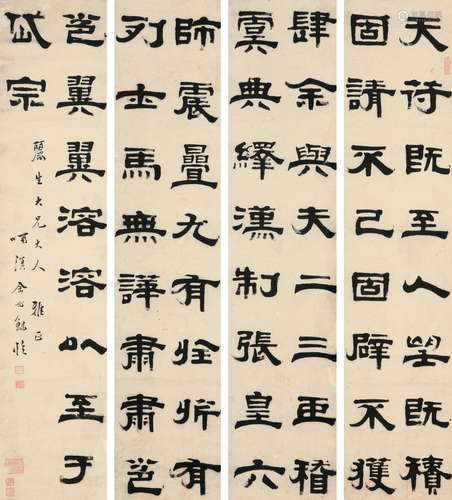 天符既至人望既積
固請不已固辟不獲
肆余與夫二三臣稽
虞典繹漢制張皇六
師震疊九有旌旂有
列士馬無譁肅肅邕
邕翼翼溶溶以至于
岱宗
麗生大兄大人雅正